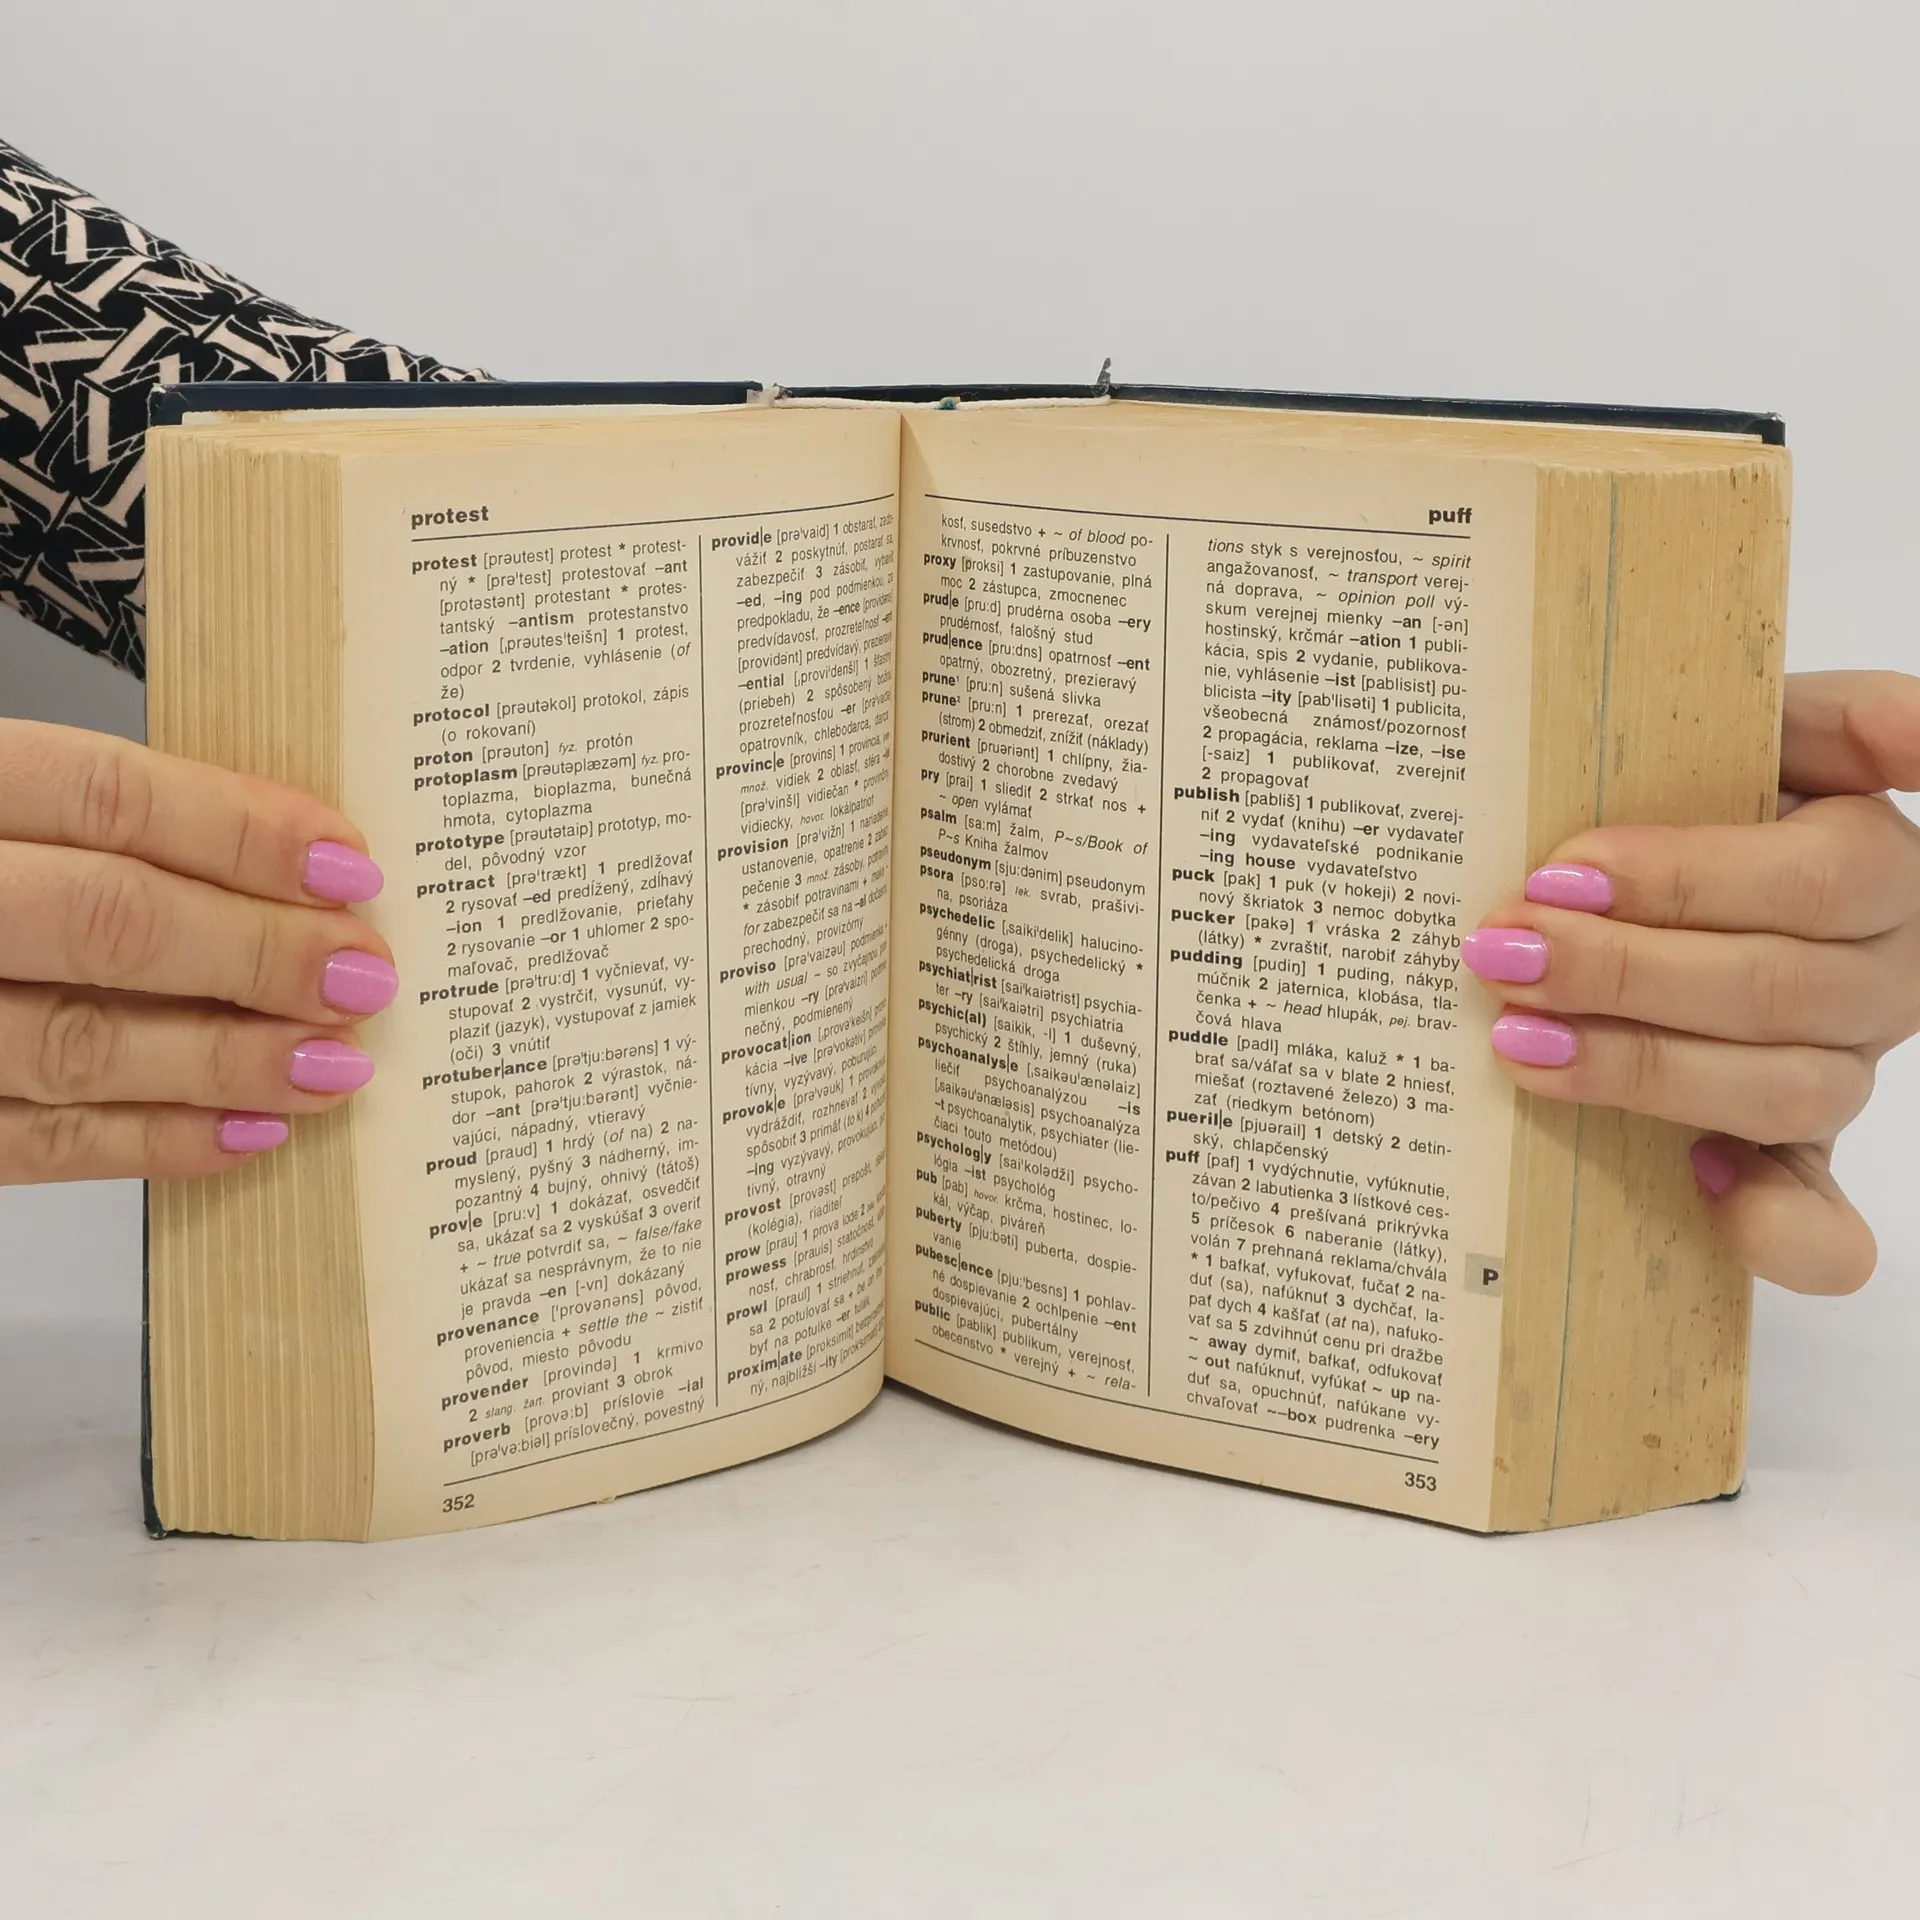 protest
protest [prəutest] protest * protest-
ný * [prə'test] protestovať –ant
[protəstənt] protestant * protes-
tantský –antism protestanstvo
–ation [ˌprəutes'teišn] 1 protest,
odpor 2 tvrdenie, vyhlásenie (of
že)
protocol [prəutəkol] protokol, zápis
(o rokovaní)
proton [prəuton] fyz. protón
protoplasm [prəutəplæzəm] fyz. pro-
toplazma, bioplazma, bunečná
hmota, cytoplazma
prototype [prəutətaip] prototyp, mo-
del, pôvodný vzor
protract [prə'trækt] 1 predlžovať
2 rysovať –ed predĺžený, zdĺhavý
–ion 1 predlžovanie, prieťahy
2 rysovanie –or 1 uhlomer 2 spo-
maľovač, predlžovač
protrude [prə'tru:d] 1 vyčnievať, vy-
stupovať 2 vystrčiť, vysunúť, vy-
plaziť (jazyk), vystupovať z jamiek
(oči) 3 vnútiť
protuber|ance [prə'tju:bərəns] 1 vý-
stupok, pahorok 2 výrastok, ná-
dor –ant [prə'tju:bərənt] vyčnie-
vajúci, nápadný, vtieravý
proud [praud] 1 hrdý (of na) 2 na-
myslený, pyšný 3 nádherný, im-
pozantný 4 bujný, ohnivý (tátoš)
prov|e [pru:v] 1 dokázať, osvedčiť
sa, ukázať sa 2 vyskúšať 3 overiť
+ ~ true potvrdiť sa, ~ false/fake
ukázať sa nesprávnym, že to nie
je pravda –en [-vn] dokázaný
provenance ['provənəns] pôvod,
proveniencia + settle the ~ zistiť
pôvod, miesto pôvodu
provender [provində] 1 krmivo
2 slang. žart. proviant 3 obrok
proverb [provə:b] príslovie –ial
[prə'və:biəl] príslovečný, povestný
352
provid|e [prə'vaid] 1 obstarať, zado-
vážiť 2 poskytnúť, postarať sa,
zabezpečiť 3 zásobiť, vybaviť
–ed, –ing pod podmienkou, za
predpokladu, že –ence [providəns]
predvídavosť, prozreteľnosť –ent
[providənt] predvídavý, prezieravý
–ential [ˌprovi'denšl] 1 šťastný
(priebeh) 2 spôsobený božou
prozreteľnosťou –er [prə'vaidə]
opatrovník, chlebodarca, darca
provinc|e [provins] 1 provincia,
množ. vidiek 2 oblasť, sféra –ial
[prə'vinšl] vidiečan * provinčný,
vidiecky, hovor. lokálpatriot
provision [prə'vižn] 1 nariadenie,
ustanovenie, opatrenie 2 zabez-
pečenie 3 množ. zásoby, potraviny
* zásobiť potravinami + make ~
for zabezpečiť sa na –al dočasný,
prechodný, provizórny
proviso [prə'vaizəu] podmienka +
with usual ~ so zvyčajnou pod-
mienkou –ry [prə'vaizri] podmie-
nečný, podmienený
provocat|ion [ˌprovə'keišn] provo-
kácia –ive [prə'vokətiv] provoka-
tívny, vyzývavý, poburujúco
provok|e [prə'vəuk] 1 provokovať,
vydráždiť, rozhnevať 2 vyvolať,
spôsobiť 3 primäť (to k) 4
–ing vyzývavý, provokujúco,
tívny, otravný
provost [provəst] prepošt, dekan
(kolégia), riaditeľ
prow [prau] 1 prova lode 2
prowess [prauis] statočnosť,
nosť, chrabrosť, hrdinstvo
prowl [praul] 1 striehnuť,
sa 2 potulovať sa + be on the ~
byť na potulke –er tulák
proxim|ate [proksimit] bezprostred-
ný, najbližší –ity [prok'siməti]
puff
kosť, susedstvo + ~ of blood po-
krvnosť, pokrvné príbuzenstvo
proxy [proksi] 1 zastupovanie, plná
moc 2 zástupca, zmocnenec
prud|e [pru:d] prudérna osoba –ery
prudérnosť, falošný stud
prud|ence [pru:dns] opatrnosť –ent
opatrný, obozretný, prezieravý
prune¹ [pru:n] sušená slivka
prune² [pru:n] 1 prerezať, orezať
(strom) 2 obmedziť, znížiť (náklady)
prurient [pruəriənt] 1 chlípny, žia-
dostivý 2 chorobne zvedavý
pry [prai] 1 sliediť 2 strkať nos +
~ open vylámať
psalm [sa:m] žalm, P~s/Book of
P~s Kniha žalmov
pseudonym [sju:dənim] pseudonym
psora [pso:rə] lek. svrab, prašivi-
na, psoriáza
psychedelic [ˌsaiki'delik] halucino-
génny (droga), psychedelický *
psychedelická droga
psychiat|rist [sai'kaiətrist] psychia-
ter –ry [sai'kaiətri] psychiatria
psychic(al) [saikik, -l] 1 duševný,
psychický 2 štíhly, jemný (ruka)
psychoanalys|e [ˌsaikəu'ænəlaiz]
liečiť psychoanalýzou –is
[ˌsaikəu'ænæləsis] psychoanalýza
–t psychoanalytik, psychiater (lie-
čiaci touto metódou)
psycholog|y [sai'kolədži] psycho-
lógia –ist psychológ
pub [pab] hovor. krčma, hostinec, lo-
kál, výčap, piváreň
puberty [pju:bəti] puberta, dospie-
vanie
pubesc|ence [pju:'besns] 1 pohlav-
né dospievanie 2 ochlpenie –ent
dospievajúci, pubertálny
public [pablik] publikum, verejnosť,
obecenstvo * verejný + ~ rela-
tions styk s verejnosťou, ~ spirit
angažovanosť, ~ transport verej-
ná doprava, ~ opinion poll vý-
skum verejnej mienky –an [-ən]
hostinský, krčmár –ation 1 publi-
kácia, spis 2 vydanie, publikova-
nie, vyhlásenie –ist [pablisist] pu-
blicista –ity [pab'lisəti] 1 publicita,
všeobecná známosť/pozornosť
2 propagácia, reklama –ize, –ise
[-saiz] 1 publikovať, zverejniť
2 propagovať
publish [pabliš] 1 publikovať, zverej-
niť 2 vydať (knihu) –er vydavateľ
–ing vydavateľské podnikanie
–ing house vydavateľstvo
puck [pak] 1 puk (v hokeji) 2 novi-
nový škriatok 3 nemoc dobytka
pucker [pakə] 1 vráska 2 záhyb
(látky) * zvraštiť, narobiť záhyby
pudding [pudiŋ] 1 puding, nákyp,
múčnik 2 jaternica, klobása, tla-
čenka + ~ head hlupák, pej. brav-
čová hlava
puddle [padl] mláka, kaluž * 1 ba-
brať sa/váľať sa v blate 2 hniesť,
miešať (roztavené železo) 3 ma-
zať (riedkym betónom)
pueril|e [pjuərail] 1 detský 2 detin-
ský, chlapčenský
puff [paf] 1 vydýchnutie, vyfúknutie,
závan 2 labutienka 3 lístkové ces-
to/pečivo 4 prešívaná prikrývka
5 príčesok 6 naberanie (látky),
volán 7 prehnaná reklama/chvála
* 1 bafkať, vyfukovať, fučať 2 na-
duť (sa), nafúknuť 3 dychčať, la-
pať dych 4 kašľať (at na), nafuko-
vať sa 5 zdvihnúť cenu pri dražbe
~ away dymiť, bafkať, odfukovať
~ out nafúknuť, vyfúkať ~ up na-
duť sa, opuchnúť, nafúkane vy-
chvaľovať ~–box pudrenka –ery
P
353